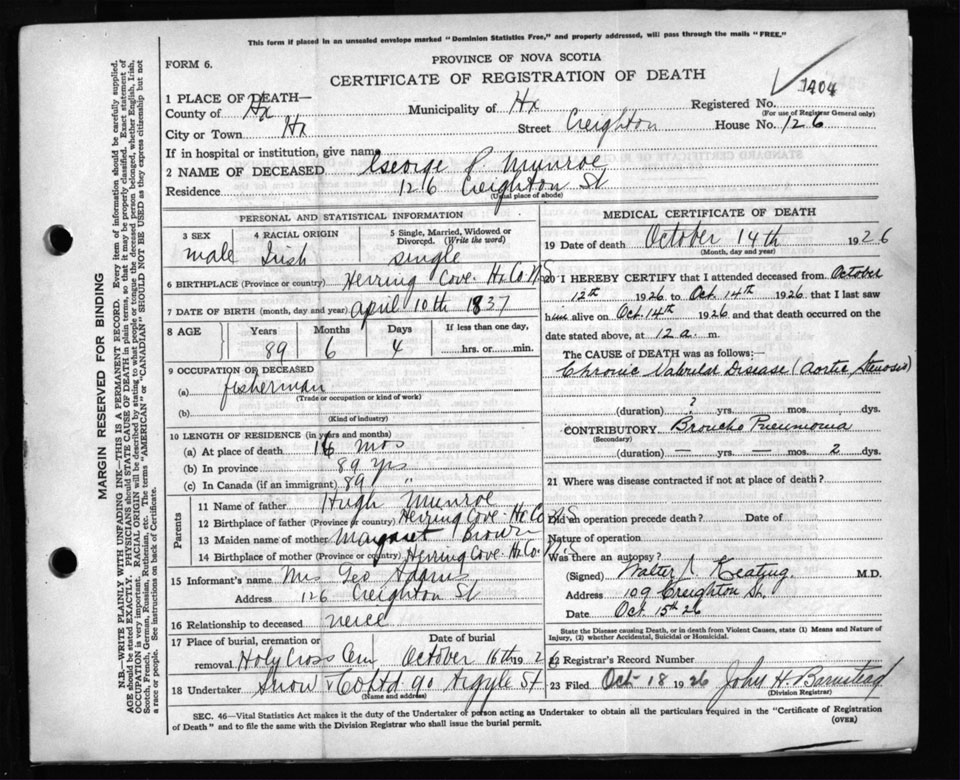 This form if placed in an unsealed envelope marked "Dominion Statistics Free," and properly addressed, will pass through the mails "FREE."
FORM 6.
PROVINCE OF NOVA SCOTIA
CERTIFICATE OF REGISTRATION OF DEATH
1404
1 PLACE OF DEATH—
County of Hx Municipality of Hx Registered No.
(For use of Registrar General only)
City or Town Hx Street Creighton House No. 126
If in hospital or institution, give name
2 NAME OF DECEASED George P. Munroe
Residence 126 Creighton St
(Usual place of abode)
PERSONAL AND STATISTICAL INFORMATION
3 SEX 4 RACIAL ORIGIN 5 Single, Married, Widowed or Divorced. (Write the word)
male Irish single
6 BIRTHPLACE (Province or country) Herring Cove Hx Co N.S
7 DATE OF BIRTH (month, day and year) April 10th 1837
8 AGE Years Months Days If less than one day,
89 6 4 hrs. or min.
9 OCCUPATION OF DECEASED
(a) fisherman
(Trade or occupation or kind of work)
(b)
(Kind of industry)
10 LENGTH OF RESIDENCE (in years and months)
(a) At place of death mos
(b) In province 89 yrs
(c) In Canada (if an immigrant) 89 "
Parents
11 Name of father Hugh Munroe
12 Birthplace of father (Province or country) Herring Cove Hx Co N.S
13 Maiden name of mother Margaret Brown
14 Birthplace of mother (Province or country) Herring Cove Hx Co N.S
15 Informant's name Mrs Geo Adams
Address 126 Creighton St
16 Relationship to deceased neice
17 Place of burial, cremation or removal. Holy Cross Cem Date of burial October 16th 1926
18 Undertaker Snow & Co Ltd 90 Argyle St
(Name and address)
MEDICAL CERTIFICATE OF DEATH
19 Date of death October 14th 1926
(Month, day and year)
20 I HEREBY CERTIFY that I attended deceased from October
12th 1926 to Oct. 14th 1926 that I last saw
him alive on Oct. 14th 1926 and that death occurred on the
date stated above, at 12 a. m.
The CAUSE OF DEATH was as follows:
Chronic Valvular Disease (Aortic Stenosis)
(duration) ? yrs. mos. dys.
CONTRIBUTORY Broncho Pneumonia
(Secondary)
(duration) — yrs. — mos. 2 dys.
21 Where was disease contracted if not at place of death?
Did an operation precede death? Date of
Nature of operation
Was there an autopsy?
(Signed) Walter J. Keating. M.D.
Address 109 Creighton St.
Date Oct 15th 26
State the Disease causing Death, or in death from Violent Causes, state (1) Means and Nature of
Injury, (2) whether Accidental, Suicidal or Homicidal.
22 Registrar's Record Number
23 Filed Oct 18 1926 John H. Barnstead
(Division Registrar)
SEC. 46—Vital Statistics Act makes it the duty of the Undertaker of person acting as Undertaker to obtain all the particulars required in the "Certificate of Registration
of Death" and to file the same with the Division Registrar who shall issue the burial permit.
(OVER)
MARGIN RESERVED FOR BINDING
N.B.—WRITE PLAINLY WITH UNFADING INK—THIS IS A PERMANENT RECORD. Every item of information should be carefully supplied.
AGE should be stated EXACTLY. PHYSICIANS should STATE CAUSE OF DEATH in plain terms, so that it may be properly classified. Exact statement of
OCCUPATION is very important. RACIAL ORIGIN will be described by stating to what people or tongue the deceased person belonged, whether English, Irish,
Scotch, French, German, Russian, Ruthenian, etc. The terms "AMERICAN" or "CANADIAN" SHOULD NOT BE USED as they express citizenship but not
a race or people. See instructions on back of Certificate.